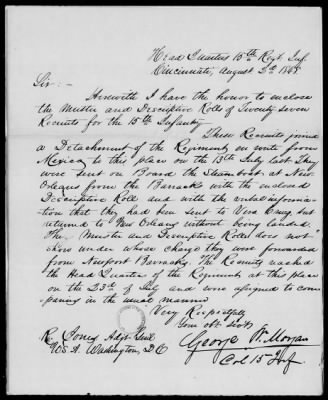 Head Quarters 15th Regt. Inf.
Cincinnati, August 2d 1848
Sir: -
Herewith I have the honor to enclose
the Muster and Descriptive Rolls of Twenty seven
Recruits for the 15th Infantry
These Recruits joined
a Detachment of the Regiment en route from
Mexico to this place on the 13th July last. They
were sent on Board the Steamboat at New
Orleans from the Barracks with the enclosed
Descriptive Roll and with the verbal informa-
tion that they had been sent to Vera Cruz, but
returned to New Orleans without being landed.
The Muster and Descriptive Rolls does not
show under whose charge they were forwarded
from Newport Barracks. The Recruits reached
the Head Quarter of the Regiment at this place
on the 23d of July and were assigned to com-
panies in the usual manner
Very Respectfully
Your obt. Servt.
George W. Morgan
Col 15 Inf
R. Jones Adjt. Genl.
U.S.A. Washington, D.C